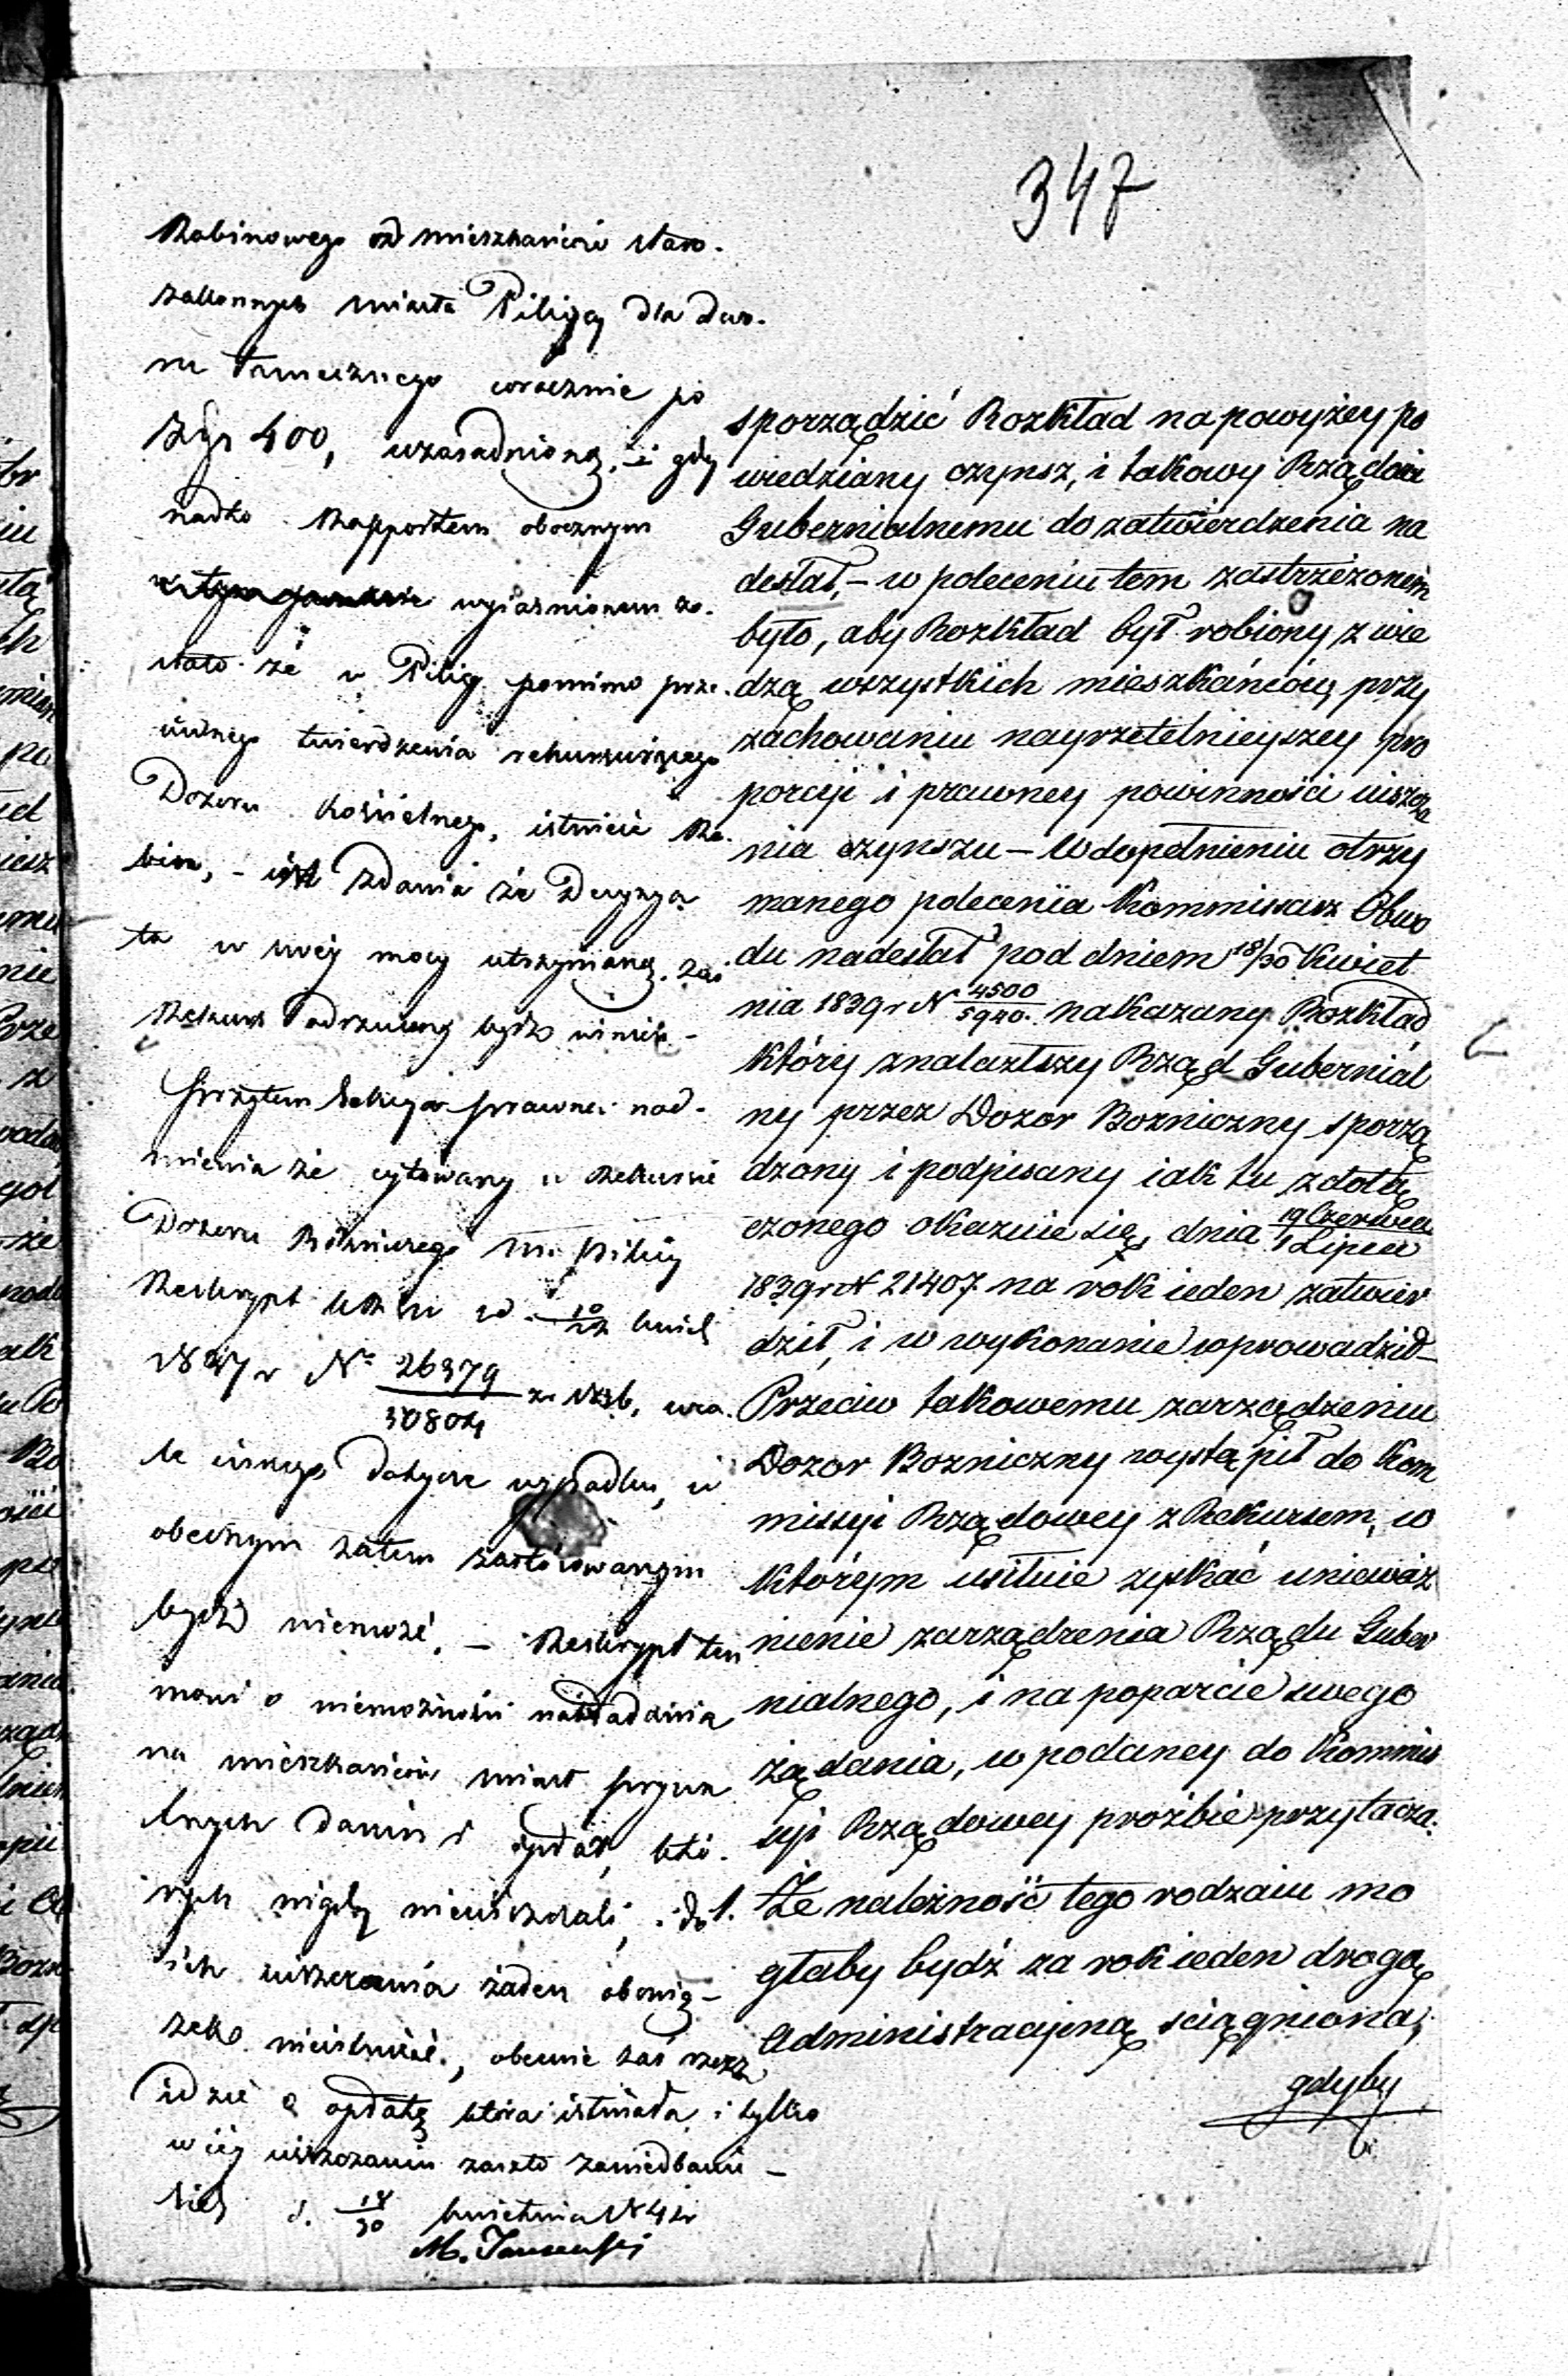 347
Rabinowego od mieszkańców staro-
zakonnych miasta Pilicy dla Dwo-
ru tamecznego corocznie po
Złp 400, uzasadnioną, i gdy
nadto Rapportem obocznym
wyiasnionem zo-
stało że w Pilicy pomimo prze-
ciwnego twierdzenia rekursującego
Dozoru kościelnego, istnieie Ra-
bin, – iest zdania że Decyzya
ta w swéy mocy utrzymaną, zaś
Rekurs odrzucony bydź winien –
Przytem Sekcya prawna nad-
mienia że cytowany w Rekursie
Dozoru Bóżniczego m. Pilicy
Reskrypt
1837 r N° 26379/30804 z
innego dotyczy wypadku, i w
obecnym zatem zastósowanym
bydź niemoże. – Reskrypt ten
mówi o niemożności nakładania
na mieszkańców miast prywa
tnych danin i opłat, któ-
rych nigdy nieuiszczali, i do
ich uiszczania żaden obowią-
zek nieistnieie, obecnie zaś rzecz
idzie o opłatę która istniała i tylko
w iéy uiszczaniu zaszło zaniedbanie –
d. 18/30 kwietnia 1842
sporządzić Rozkład na powyżey po
wiedziany czynsz, i takowy Rządowi
Gubernialnemu do zatwierdzenia na
desłał, – w poleceniu tem zastrzeżonem
było, aby Rozkład był robiony z wie
dzą wszystkich mieszkańców, przy
zachowaniu nayrzetelnieyszey pro
porcyi i prawney powinności uiszcza
nia czynszu – W dopełnieniu otrzy
manego polecenia Kommissarz Obwo
du nadesłał pod dniem 18/30 Kwiet
nia 1839 r N 4500/5940. nakazany Rozkład
który znalazłszy Rząd Gubernial
ny przez Dozor Bozniczny sporzą
dzony i podpisany iak tu z dołą
czonego okazuie się, dnia 19 Czerwca/1 Lipca
1839 r N 21407 na rok ieden zatwier
dził, i w wykonanie wprowadził –
Przeciw takowemu zarządzeniu
Dozor Bozniczny wystąpił do Kom
missyi Rządowey z Rekursem, w
którym usiłuie zyskać unieważ
nienie zarządzenia Rządu Guber
nialnego, i na poparcie swego
żądania, w podaney do Kommis
syi Rządowey prozbie przytacza:
1. Że należność tego rodzaiu mo
głaby bydź za rok ieden drogą
Administracyjną sciągniona,
gdyby